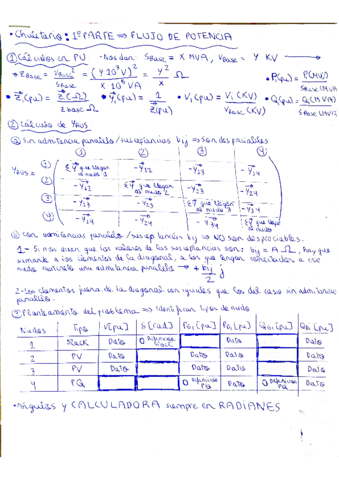 • Chuletario: 1ª PARTE ⇒ FLUJO DE POTENCIA
① Cálculos en PU - Nos dan S_Base = X MVA, V_Base = Y KV
→ Z_Base = V_Base² / S_Base = (Y 10³ V)² / X 10⁶ VA = Y²/X Ω
• P(pu) = P(MW) / S_Base (MVA)
• Z(pu) = Z(Ω) / Z base Ω • Y(pu) = 1 / Z(pu) • Vi(pu) = Vi (KV) / V_Base (KV) • Q(pu) = Q(MVA) / S_Base (MVA)
② Cálculo de Y_BUS
Ⓐ Sin admitancia paralelo / susceptancias bij ⇒ Son despreciables
① ② ③ ④
Y_BUS =
① ΣY que llegan al nudo 1 -Y12 -Y13 -Y14
② -Y12 ΣY que llegan al nudo 2 -Y23 -Y24
③ -Y13 -Y23 ΣY que llegan al nudo 3 -Y34
④ -Y14 -Y24 -Y34 ΣY que llegan al nudo
Ⓑ Con admitancias paralelo / susceptancias bij ⇒ NO son despreciables.
1 - Si nos dicen que los valores de las susceptancias son: bij = A Ω, hay que
sumarle a los elementos de la diagonal, a los que lleguen conectados a ese
nudo concreto una admitancia paralelo ⇒ + bij/2 j
2 - Los elementos fuera de la diagonal son iguales que los del caso sin admitancia
paralelo.
③ Planteamiento del problema ⇒ identificar tipos de nudo
Nudos Tipo V[pu] δ[rad] PG[pu] PD[pu] QG[pu] QD[pu]
1 Slack Dato 0 Dato Dato
2 PV Dato Dato Dato Dato
3 PV Dato Dato Dato Dato
4 PQ 0 Definición PQ Dato 0 Definición PQ Dato
• Ángulos y CALCULADORA siempre en RADIANES